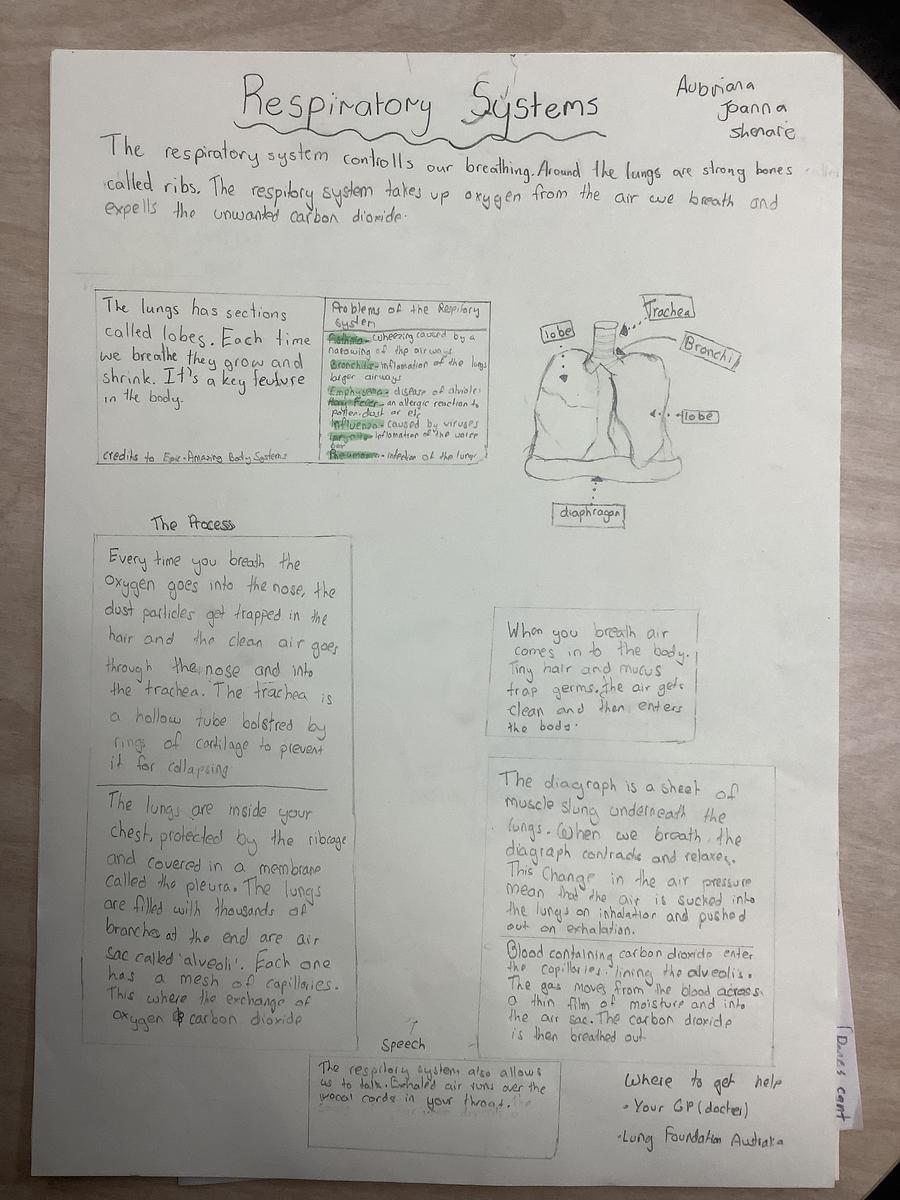 Respiratory Systems
Aubriana
Joanna
Shenare
The respiratory system controlls our breathing. Around the lungs are strong bones
called ribs. The respitory system takes up oxygen from the air we breath and
expells the unwanted carbon dioxide.
The lungs has sections
called lobes. Each time
we breathe they grow and
shrink. It's a key feature
in the body.
credits to Epic-Amazing Body Systems
Problems of the Respitory
System
Asthma- wheezing caused by a
narowing of the airways
Bronchitis- inflamation of the lungs
larger airways
Emphysema- disease of alvioles
Hay Fever- an allergic reaction to
pollen, dust or etc
Influenza- caused by viruses
inflomation of the voice
box
Pneumonia- infection of the lungs
Trachea
lobe
Bronchi
lobe
diaphragan
The Process
Every time you breath the
oxygen goes into the nose, the
dust particles get trapped in the
hair and the clean air goes
through the nose and into
the trachea. The trachea is
a hollow tube bolstred by
rings of cartilage to prevent
it for collapsing
The lungs are inside your
chest, protected by the ribcage
and covered in a membrane
called the pleura. The lungs
are filled with thousands of
branches at the end are air
sac called 'alveoli'. Each one
has a mesh of capillaries.
This where the exchange of
oxygen & carbon dioxide
When you breath air
comes in to the body.
Tiny hair and mucus
trap germs. the air gets
clean and then enters
the body.
The diagraph is a sheet of
muscle slung underneath the
lungs. When we breath the
diagraph contracts and relaxes.
This Change in the air pressure
mean that the air is sucked into
the lungs on inhalation and pushed
out on exhalation.
Blood containing carbon dioxide enter
the capillaries lining the alveolis.
The gas moves from the blood across
a thin film of moisture and into
the air sac. The carbon dioxide
is then breathed out
Speech
The respitory system also allows
us to talk. Exhaled air runs over the
vocal cords in your throat.
Where to get help
• Your GP (docter)
• Lung Foundation Australia